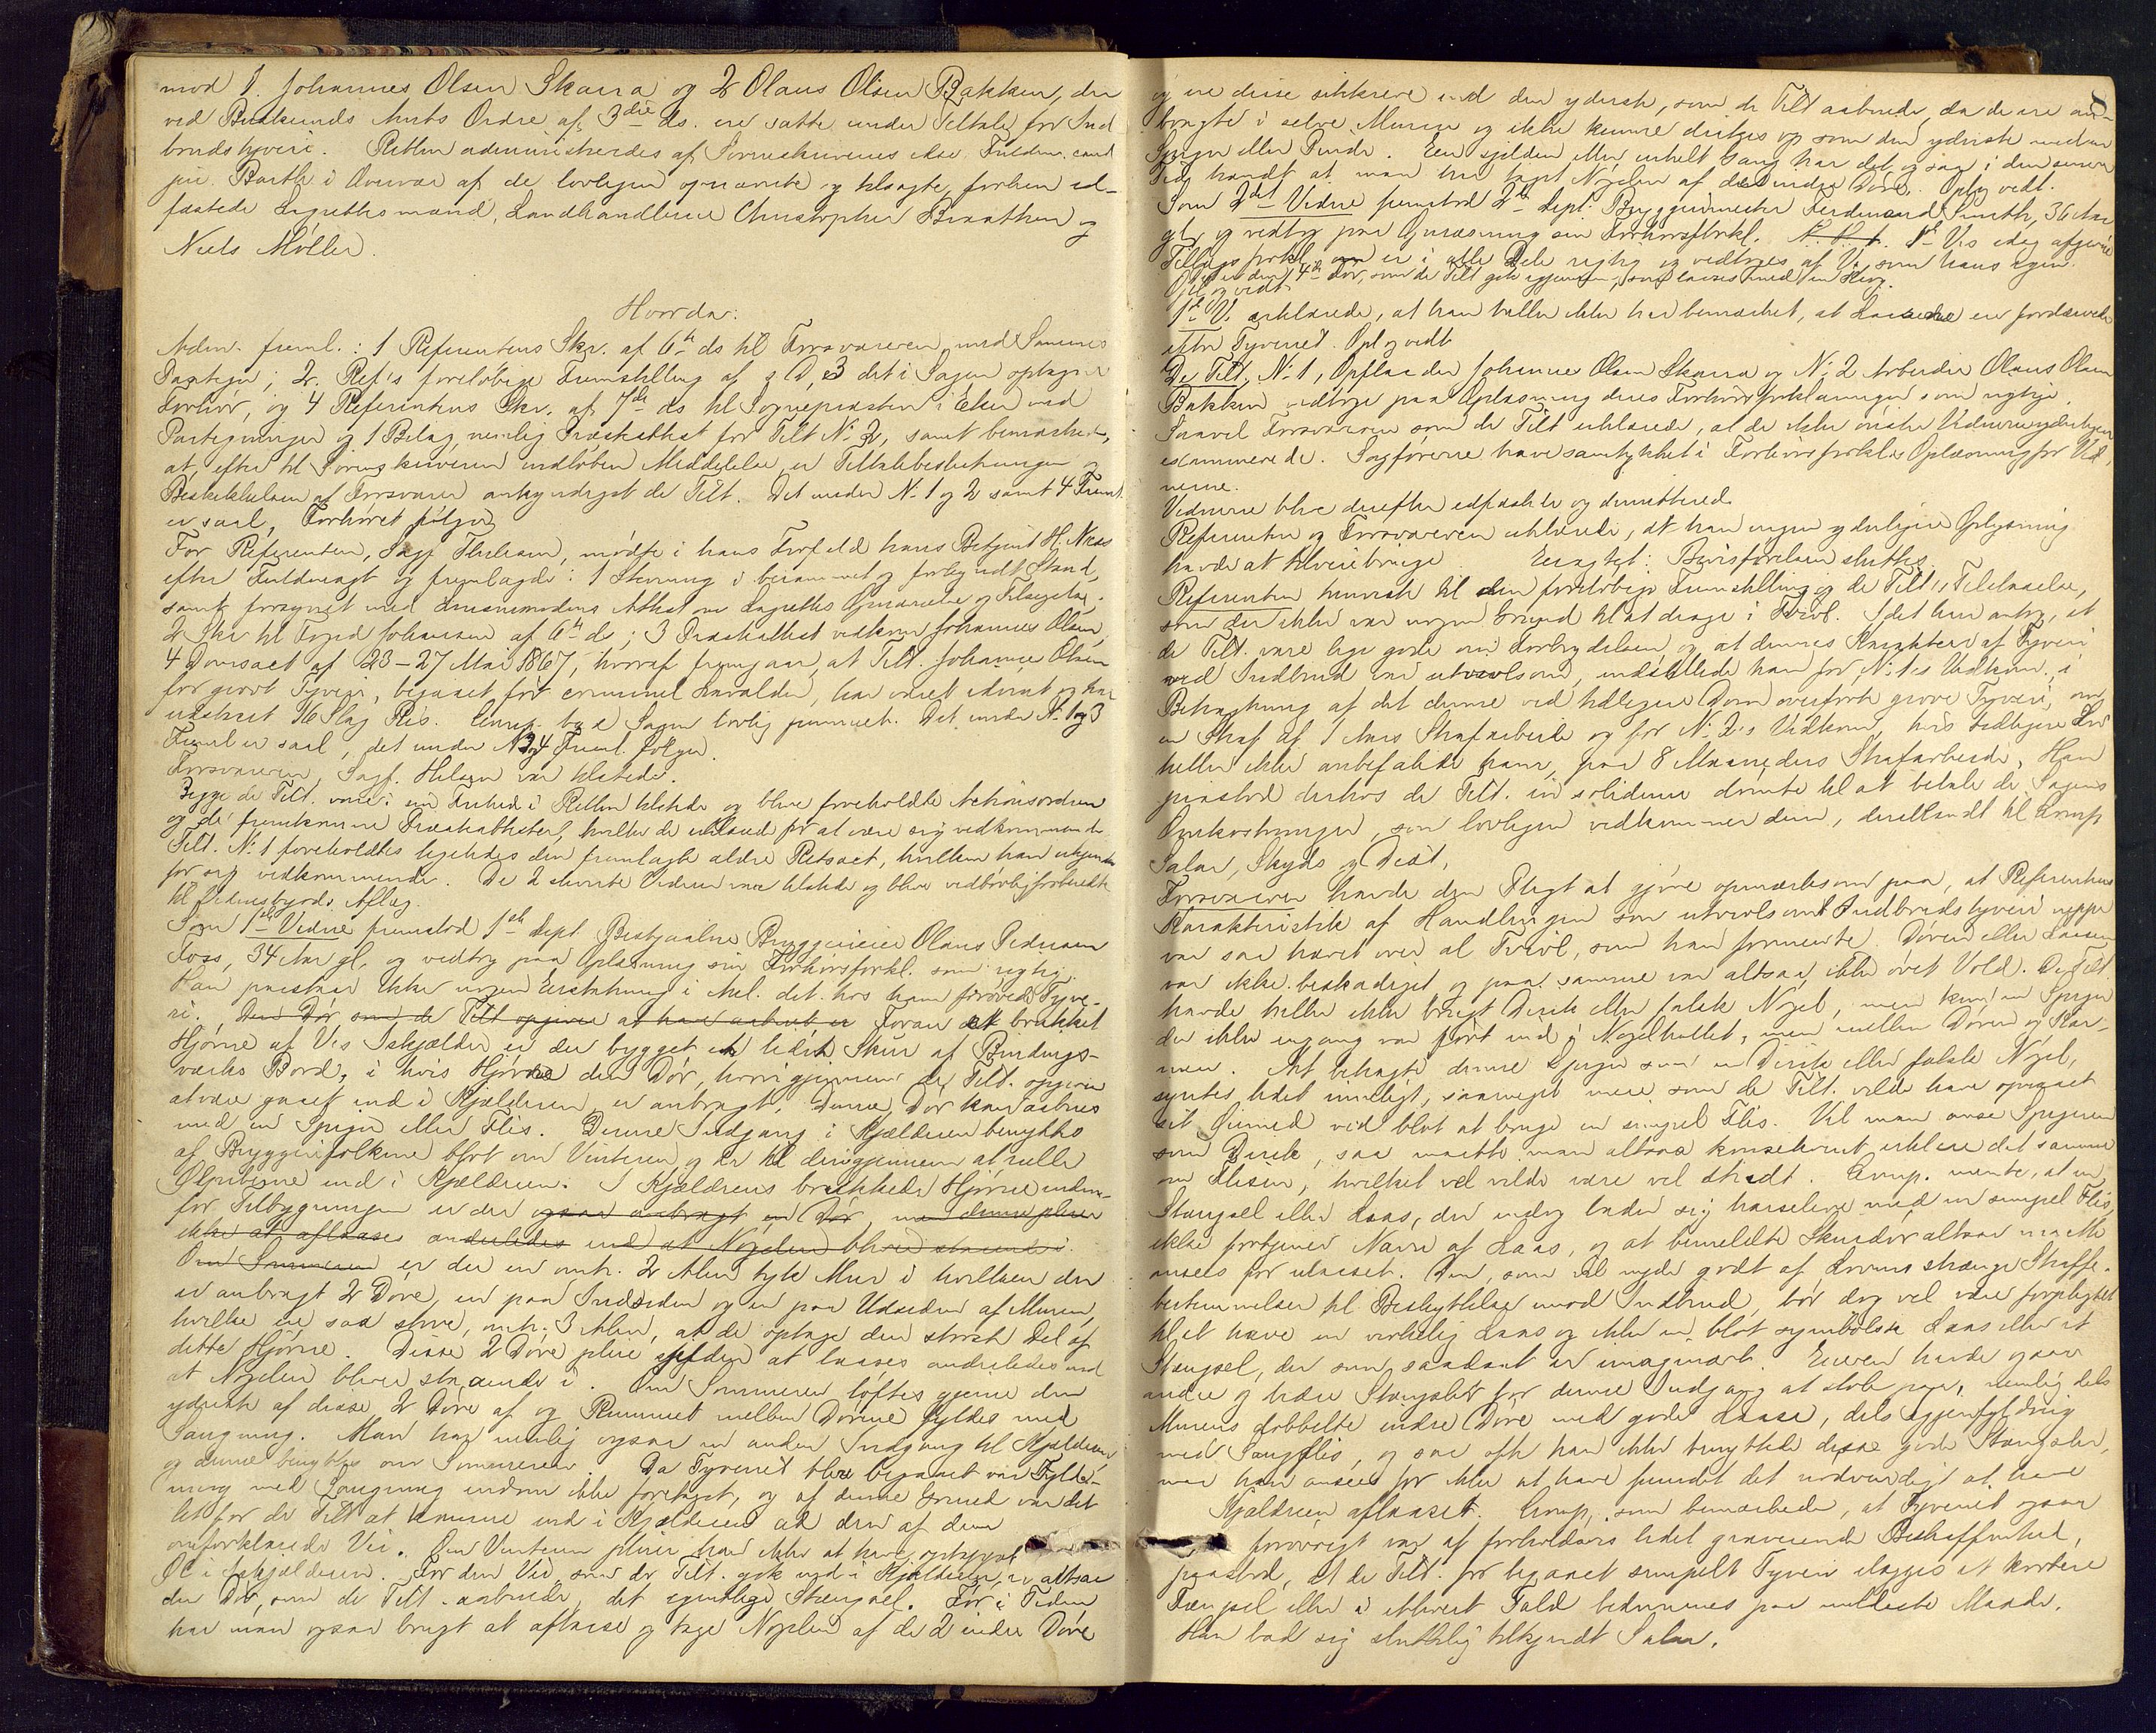 mod 1. Johannes Olsen Skara og 2 Olaus Olsen Bakken, der
ved Buskeruds Amts Ordre af 3die ds. ere satte under Tiltale for Ind
brudstyveri. Retten administreredes af Sorenskriverens Fuldm. cand
jur. Barth i Overvær af de lovligen opnævnte og tilsagte, forhen ed-
fæstede Lagrettesmænd, Landhandlerne Christopher Braathen og
Niels Møller.
Hvorda:
Adm. freml.: 1 Referentens Skr. af 6te ds til Forsvareren med Sammes
Paategn; 2. Ref's foreløbige Fremstilling af s D, 3 det i Sagen optagne
Forhør, og 4 Referentens Skr. af 7de ds til Sognepræsten i Eker med
Paategninger og 1 Bilag, nemlig Præsteattest for Tilt No 2, samt bemærkede,
at efter til Sorenskriveren indløben Meddelelse er Tiltalebeslutningen og
Beskikkelsen af Forsvarer forkyndt de Tilt. Det under No 1 og 2 samt 4 Freml.
er saal, Forhøret følger
For Referenten, Sagf. mødte i hans Forfald hans Befuldm. H. Næss
efter Fuldmagt og fremlagde: 1 Stevning i berammet og forkyndt Stand,
samt forsynet med Lensmandens Attest om Lagrettes Opnævnelse og Tilsigelse.
2 Skr til Foged Johansen af 6te ds; 3 Præsteattest vedkom. Johannes Olsen,
4 Domsact af 23-27 Mai 1867, hvoraf fremgaar, at Tilt. Johannes Olsen
for grovt Tyveri, begaaet før criminel Lavalder, har været idømt og har
udstaaet 16 Slag Ris. Comp. bad Sagen lovlig fremmet. Det under No 1 og 3
Freml er saal, det under No 2 og 4 Freml. følger.
Forsvareren, Sagf. var tilstede.
Begge de Tilt. vare i sin Frihed i Retten tilstede og bleve foreholdte Actionsordren
og de fremkomne Præsteattester, hvilke de erkjendte for at være sig vedkommende
Tilt. No 1 foreholdtes ligeledes den fremlagte ældre Retsact, hvilken han erkjendte
for sig vedkommende. De 2 stevnte Vidner vare tilstede og bleve vedbørlig forberedte
til Vidnesbyrds Aflæg.
Som 1ste Vidne fremstod 1ste Dept. Bestjaalne Bryggerieier Olaus Pedersen
Foss, 34 Aar gl. og vedtog paa Oplæsning sin Forhørsforkl. som rigtig.
Han paastaar ikke nogen Erstatning i Anl. det hos ham forøvede Tyve-
ri. Den Dør som de Tilt opgiver at have aabnet er Foran det brækket
Hjørne af V's Iskjælder er der bygget et lidet Skur af Bindings-
værks Bord, i hvis Hjørne den Dør, hvorigjennem de Tilt. opgiver
at være gaaet ind i Kjælderen, er anbragt. Denne Dør kan aabnes
med en Spiger eller Flis. Denne Indgang i Kjælderen benyttes
af Bryggerifolkene blot om Vinteren og da til derigjennem at rulle
Ølpiberne ind i Kjælderen. I Kjælderens brækkede Hjørne inden-
for Tilbygningen er der ogsaa anbragt en Dør, men denne pleier
ikke at aflaases anderledes end at Nøgelen bliver staaende i.
Om Sommeren er der en omtr. 2 Alen tyk Mur i hvilken der
er anbragt 2 Døre, en paa Indsiden og en paa Udsiden af Muren,
hvilke ere saa store, omtr. 3 Alen, at de optage den største Del af
dette Hjørne. Disse 2 Døre pleie sjelden at laases anderledes end
at Nøgelen bliver staaende i. Om Sommeren løftes gjerne den
yderste af disse 2 Døre af og Rummet mellem Dørene fyldes med
Saugmug. Man har nemlig ogsaa en anden Indgang til Kjælderen,
og denne benyttes om Sommeren. Da Tyveriet blev begaaet var Fyld-
ning med Saugmug endnu ikke foretaget, og af denne Grund var det
let for de Tilt at komme ind i Kjælderen ad den af dem
omforklarede Vei. Om Vinteren pleier han ikke at have oplagret
Øl i Iskjælderen. For den Vei, som de Tilt. gik ind i Kjælderen, er altsaa
den Dør, som de Tilt. aabnede, det egentlige Stængsel. Før i Tiden
har man ogsaa brugt at aflaase og tage Nøglen af de 2 indre Døre
8
og ere disse sikkrere end den yderste, som de Tilt aabnede, da de ere an-
bragte i selve Muren og ikke kunne dirkes op som den yderste med en
Spiger eller Pinde. Een sjelden eller enkelt Gang har det og saa i den senere
Tid hændt at man har taget Nøglen af de indre Døre. Opl. og vedt.
Som 2det Vidne fremstod 2de Dept. Bryggerimester Ferdinand Smith, 36 Aar
gl. og vedtog paa Oplæsning sin Forhørsforkl. 1ste V's idag afgivne
Tillægsforkl. er i alle Dele rigtig og vedtages af V. som hans egen.
4de Dør, som de Tilt gik igjennem,
Opl. og vedt
1ste V. erklærede, at han heller ikke har bemærket, at Laasene ere fordærvede
efter Tyveriet. Opl og vedt
De Tilt, No 1, Johannes Olsen Skara og No 2 Arbeider Olaus Olsen
Bakken vedtoge paa Oplæsning deres Forhørsforklaringer som rigtige.
Saavel Forsvareren som de Tilt erklærede, at de ikke ønske Vidnerne yderligere
examinerede. Sagførerne have samtykket i Forhørsforkl's Oplæsning for Vid-
nerne.
Vidnerne bleve derefter edfæstede og dimitterede.
Referenten og Forsvareren erklærede, at han ingen yderligere Oplysning
havde at tilveiebringe. Eragtet: Bevisførelsen sluttes.
Referenten henviste til den foreløbige Fremstilling og de Tilt's Tilstaaelse,
som der ikke var nogen Grund til at drage i Tvivl. Idet han antog, at
de Tilt. vare lige gode om Forbrydelsen, og at dennes Karakter af Tyveri
ved Indbrud var utvivlsom, indstillede han for No 1's Vedkom., i
Betragtning af det denne ved tidligere Dom overførte grove Tyveri, om
en Straf af 1 Aars Strafarbeide og for No 2's Vedkom, hvis tidligere Liv
heller ikke anbefalede ham, paa 8 Maaneders Strafarbeide. Han
paastod derhos de Tilt. in solidum dømte til at betale de Sagens
Omkostninger, som lovligen vedkommer dem, deriblandt til Comp
Salær, Skyds og Diæt.
Forsvareren havde den Pligt at gjøre opmærksom paa, at Referentens
Karakteristik af Handlingen som utvivlsomt Indbrudstyveri neppe
var saa hævet over al Tvivl, som han formente. Døren eller Laasen
var ikke beskadiget og paa samme var altsaa ikke øvet Vold. De Tilt
havde heller ikke brugt Dirik eller falsk Nøgel, men kun en Spiger
der ikke engang var ført ind i Nøgelhullet, men mellem Døren og Kar-
men. At betragte denne Spiger som en Dirik eller falske Nøgel,
syntes lidet rimeligt, saameget mere som de Tilt. vilde have opnaaet
sit Øiemed ved blot at bruge en simpel Flis. Vil man anse Spigeren
som Dirik, saa maatte man altsaa konsekvent erklære det samme
om Flisen, hvilket vel vilde være vel stridt. Comp. mente, at en
Stængsel eller Laas, der endog lader sig haanslere med en simpel Flis,
ikke fortjener Navn af Laas, og at bemeldte Skurdør altsaa maatte
ansees for ulaaset. Den, som vil nyde godt af Lovens strænge Straffe-
bestemmelser til Beskyttelse mod Indbrud, bør dog vel være forpligtet
til at have en virkelig Laas og ikke en blot symbolsk Laas eller et
Stængsel, der som saadant er imaginært. Eieren havde ogsaa
andre og bedre Stængsler for denne Indgang at stole paa, nemlig dels
Murens dobbelte indre Døre med gode Laase, dels igjenfyldning
med Saugflis, og saa ofte han ikke benyttede disse gode Stængsler,
maa han ansees for ikke at have fundet det nødvendigt at have
Kjælderen aflaaset. Comp., som bemærkede, at Tyveriet ogsaa
forøvrigt var af forholdsvis lidet graverende Beskaffenhed,
paastod, at de Tilt. for begaaet simpelt Tyveri ilægges et kortere
Fængsel eller i ethvert Fald bedømmes paa mildeste Maade.
Han bad sig sluttelig tilkjendt Salær.